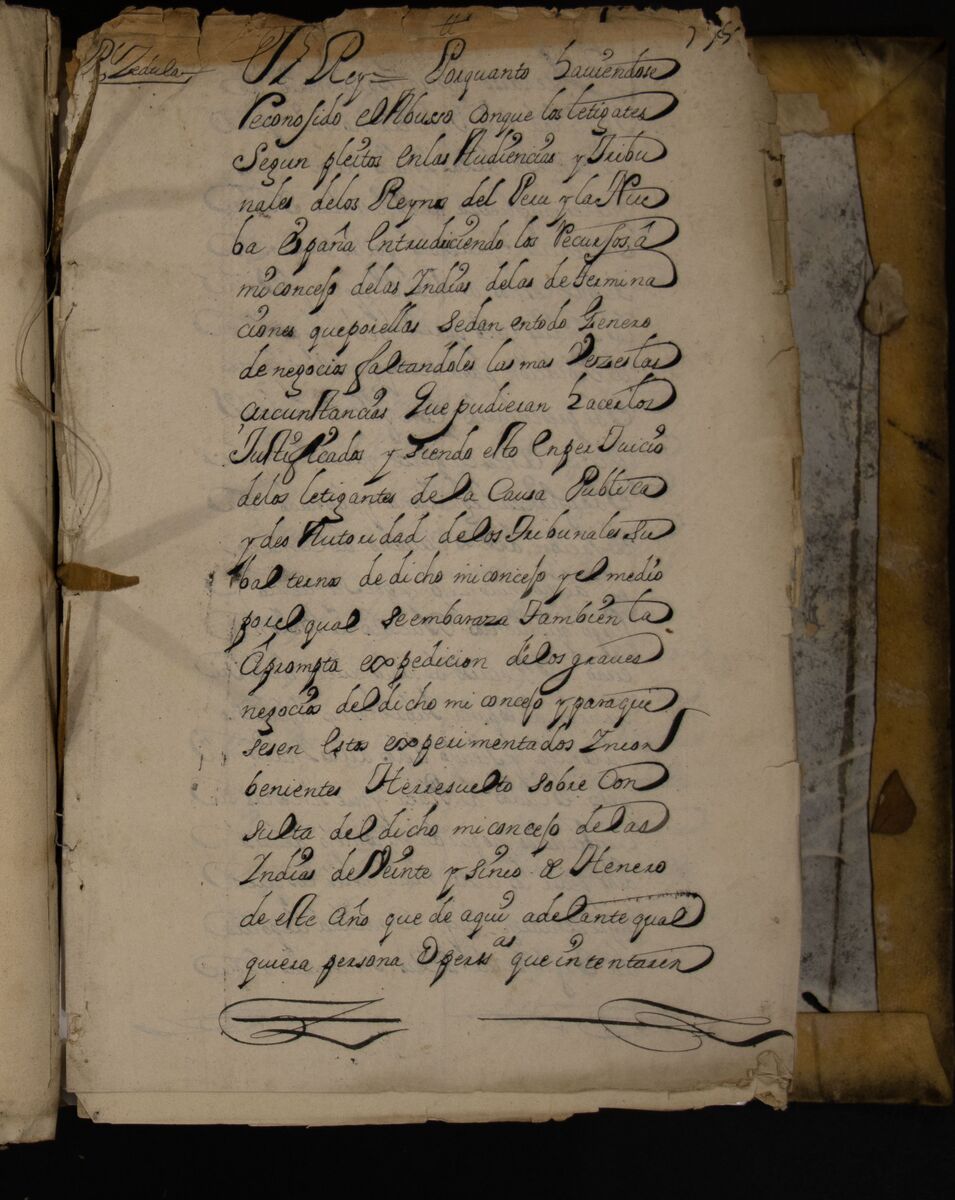 Rl Zedula
El Rey = Porquanto haviendose
Reconosido el Abusso conque los letigates
Segun pleitos enlas Audiencias y Tribu
nales delos Reynos del Peru y la Nue
ba España Entrudiciendo los Recursos, â
mi conceso delas Indias delas determina
ciones queporellas sedan entodo Genero
de negocios faltandoles las mas Vezes las
circunstancias Que pudieran hacerlos
Justificados y siendo esto enper Juicio
delos letigantes de la Causa Publica
y deo Autoridad de los Tribunales Su
balternos de dicho mi conceso y el medio
por el qual se embaraza Tambien la
Aprompta expedicion delos graves
negocios del dicho mi conceso y paraque
sesen Estos experimentados Incon
benientes Herresuelto sobre Con
sulta del dicho mi conceso de las
Indias de Veinte y sinco de Henero
de este Año que de aqui adelante qual
quiera persona O persas que intentaren